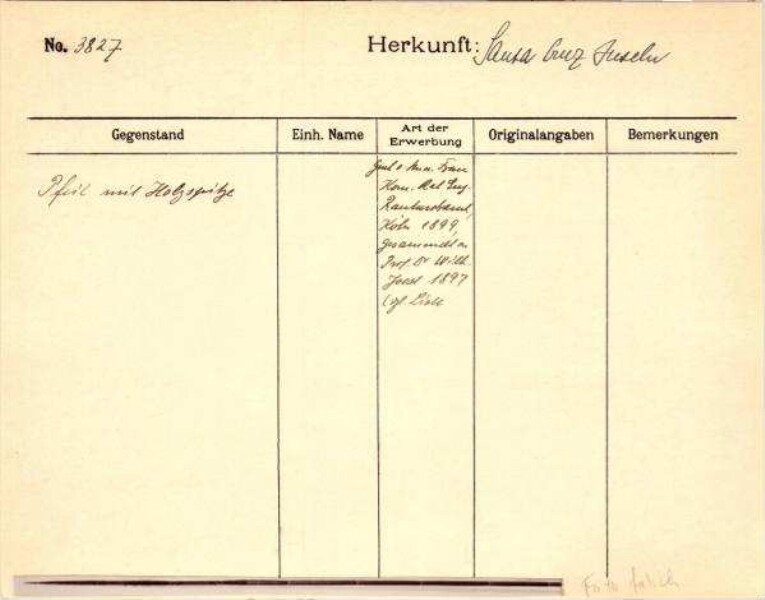 No. 3827
Herkunft: Santa Cruz Inseln
Gegenstand
Einh. Name
Art der
Erwerbung
Originalangaben
Bemerkungen
Pfeil mit Holzspitze
Frau
Kom. Rat Eug.
Rautenstrauch,
Köln 1899,
gesammelt v.
Prof. Dr Wilh.
Joest 1897
(vgl. Liste
Foto falsch